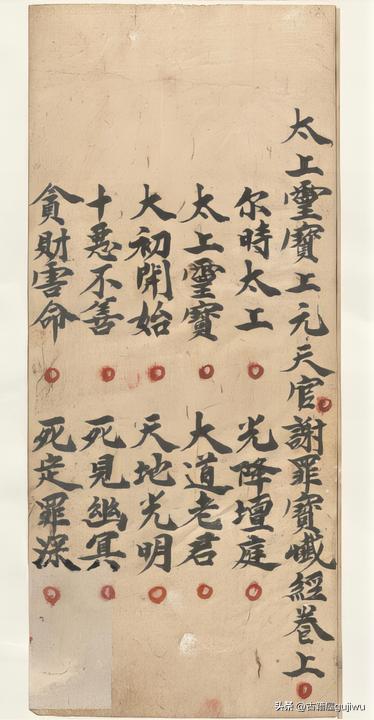 太上靈寶上元天官謝罪寶懺經卷上
尔時太上 光降壇庭
太上靈寶 大道老君
大初開始 天地光明
十惡不善 死見幽冥
貪財害命 死定罪深
头条 @古籍屋gujiwu